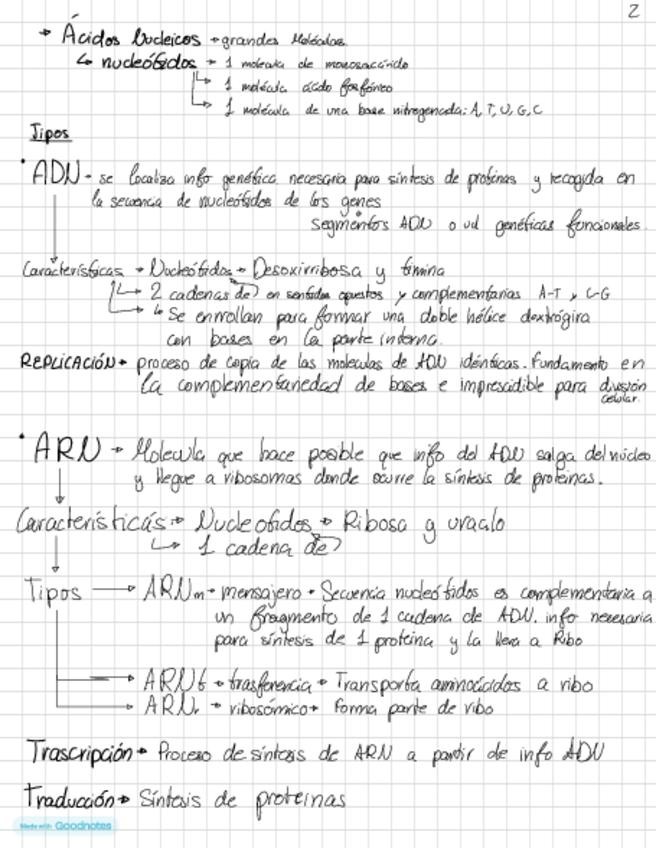 2
→ Ácidos Nucleicos → grandes Moléculas.
↳ nucleótidos → 1 molecula de monosacárido
↳ 1 molécula ácido fosfórico
↳ 1 molécula de una base nitrogenada: A, T, U, G, C
Tipos
• ADN → se localiza info genética necesaria para síntesis de proteínas y recogida en
la secuencia de nucleótidos de los genes
segmentos ADN o ud genéticas funcionales.
Características → Nucleótidos → Desoxirribosa y timina
↳ 2 cadenas de en sentidos opuestos y complementarias A-T y C-G
↳ Se enrollan para formar una doble hélice dextrógira
con bases en la parte interna.
REPLICACIÓN → proceso de copia de las moleculas de ADN idénticas. Fundamento en
la complementariedad de bases e imprescidible para división
celular.
• ARN → Molecula que hace posible que info del ADN salga del núcleo
y llegue a ribosomas donde ocurre la síntesis de proteinas.
Características → Nucleotidos → Ribosa y uracilo
↳ 1 cadena de
Tipos → ARNm → mensajero → Secuencia nucleótidos es complementaria a
un fragmento de 1 cadena de ADN. info necesaria
para síntesis de 1 proteina y la lleva a Ribo
→ ARNt → trasferencia → Transporta aminoácidos a ribo
→ ARNr → ribosómico → Forma parte de ribo
Trascripción → Proceso de síntesis de ARN a partir de info ADN
Traducción → Síntesis de proteinas
Made with Goodnotes